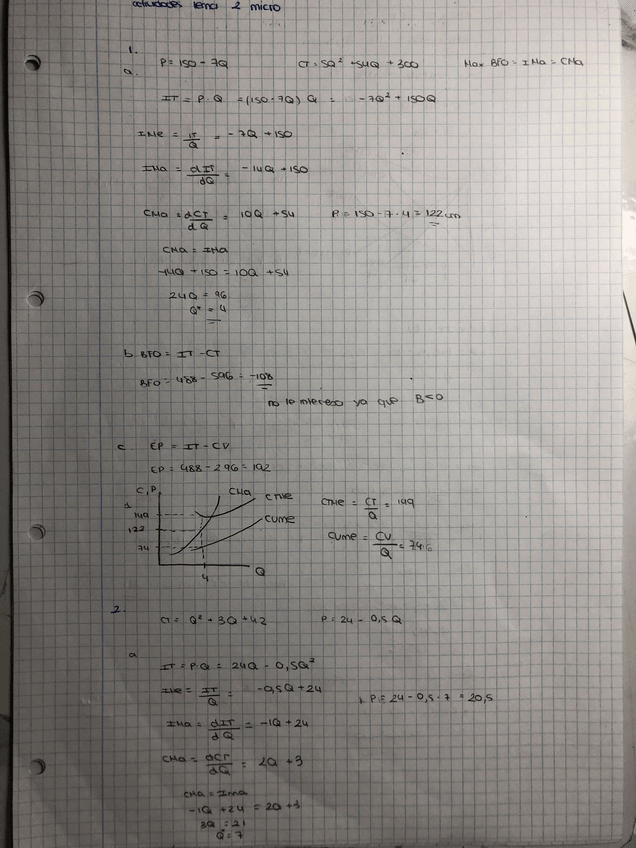 actividades tema 2 micro
1.
a. P = 150 - 7Q CT = 5Q² + 54Q + 300 Max BFO = IMa = CMa
IT = P · Q = (150 - 7Q) Q = -7Q² + 150Q
IMe = IT/Q = -7Q + 150
IMa = dIT/dQ = -14Q + 150
CMa = dCT/dQ = 10Q + 54 P = 150 - 7 · 4 = 122 um
CMa = IMa
-14Q + 150 = 10Q + 54
24Q = 96
Q* = 4
b BFO = IT - CT
BFO = 488 - 596 = -108
no le interesa ya que B<0
c. EP = IT - CV
EP = 488 - 296 = 192
C,P
CMa CTMe
d
149
CVMe
122
74
4
Q
CTMe = CT/Q = 149
CVMe = CV/Q = 74
2.
CT = Q² + 3Q + 42 P = 24 - 0,5Q
a
IT = P·Q = 24Q - 0,5Q²
IMe = IT/Q = -0,5Q + 24
P = 24 - 0,5 · 7 = 20,5
IMa = dIT/dQ = -1Q + 24
CMa = dCT/dQ = 2Q + 3
CMa = Ima
-1Q + 24 = 2Q + 3
3Q = 21
Q* = 7